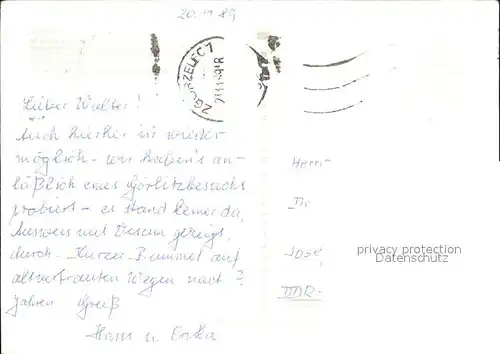 20.11.89
ZGORZELEC 1
Lieber Walter!
Auch hierher ist wieder
möglich - wir haben's an-
läßlich eines Görlitzbesuchs
probiert - es stand keiner da,
Ausweis und Visum gezeigt,
durch. Kurzer Bummel auf
altvertrauten Wegen nach ?
Jahren Gruß
Hans u.
Herrn
Dr
José
DDR-
privacy protection
Datenschutz